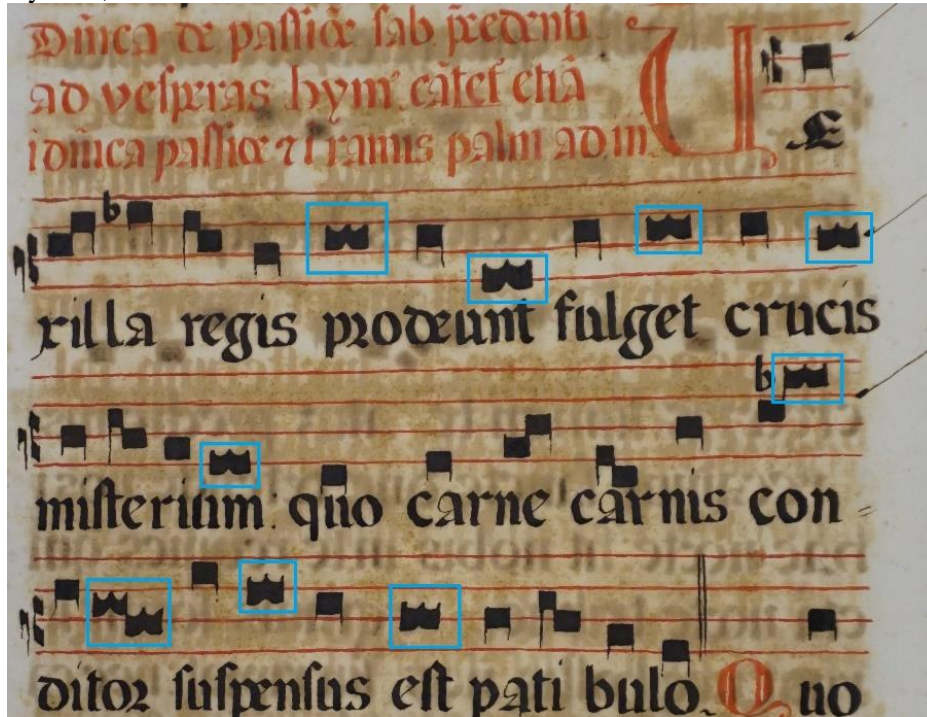 Dñica de passiõe sab p̃cedenti
ad vesperas hym⁹ cãtet᷑ etiã
i dñica passiõe ⁊ i ramis palm ad in
V
E
xilla regis prodeunt fulget crucis
misterium: quo carne carnis con
ditor suspensus est pati bulo. Quo